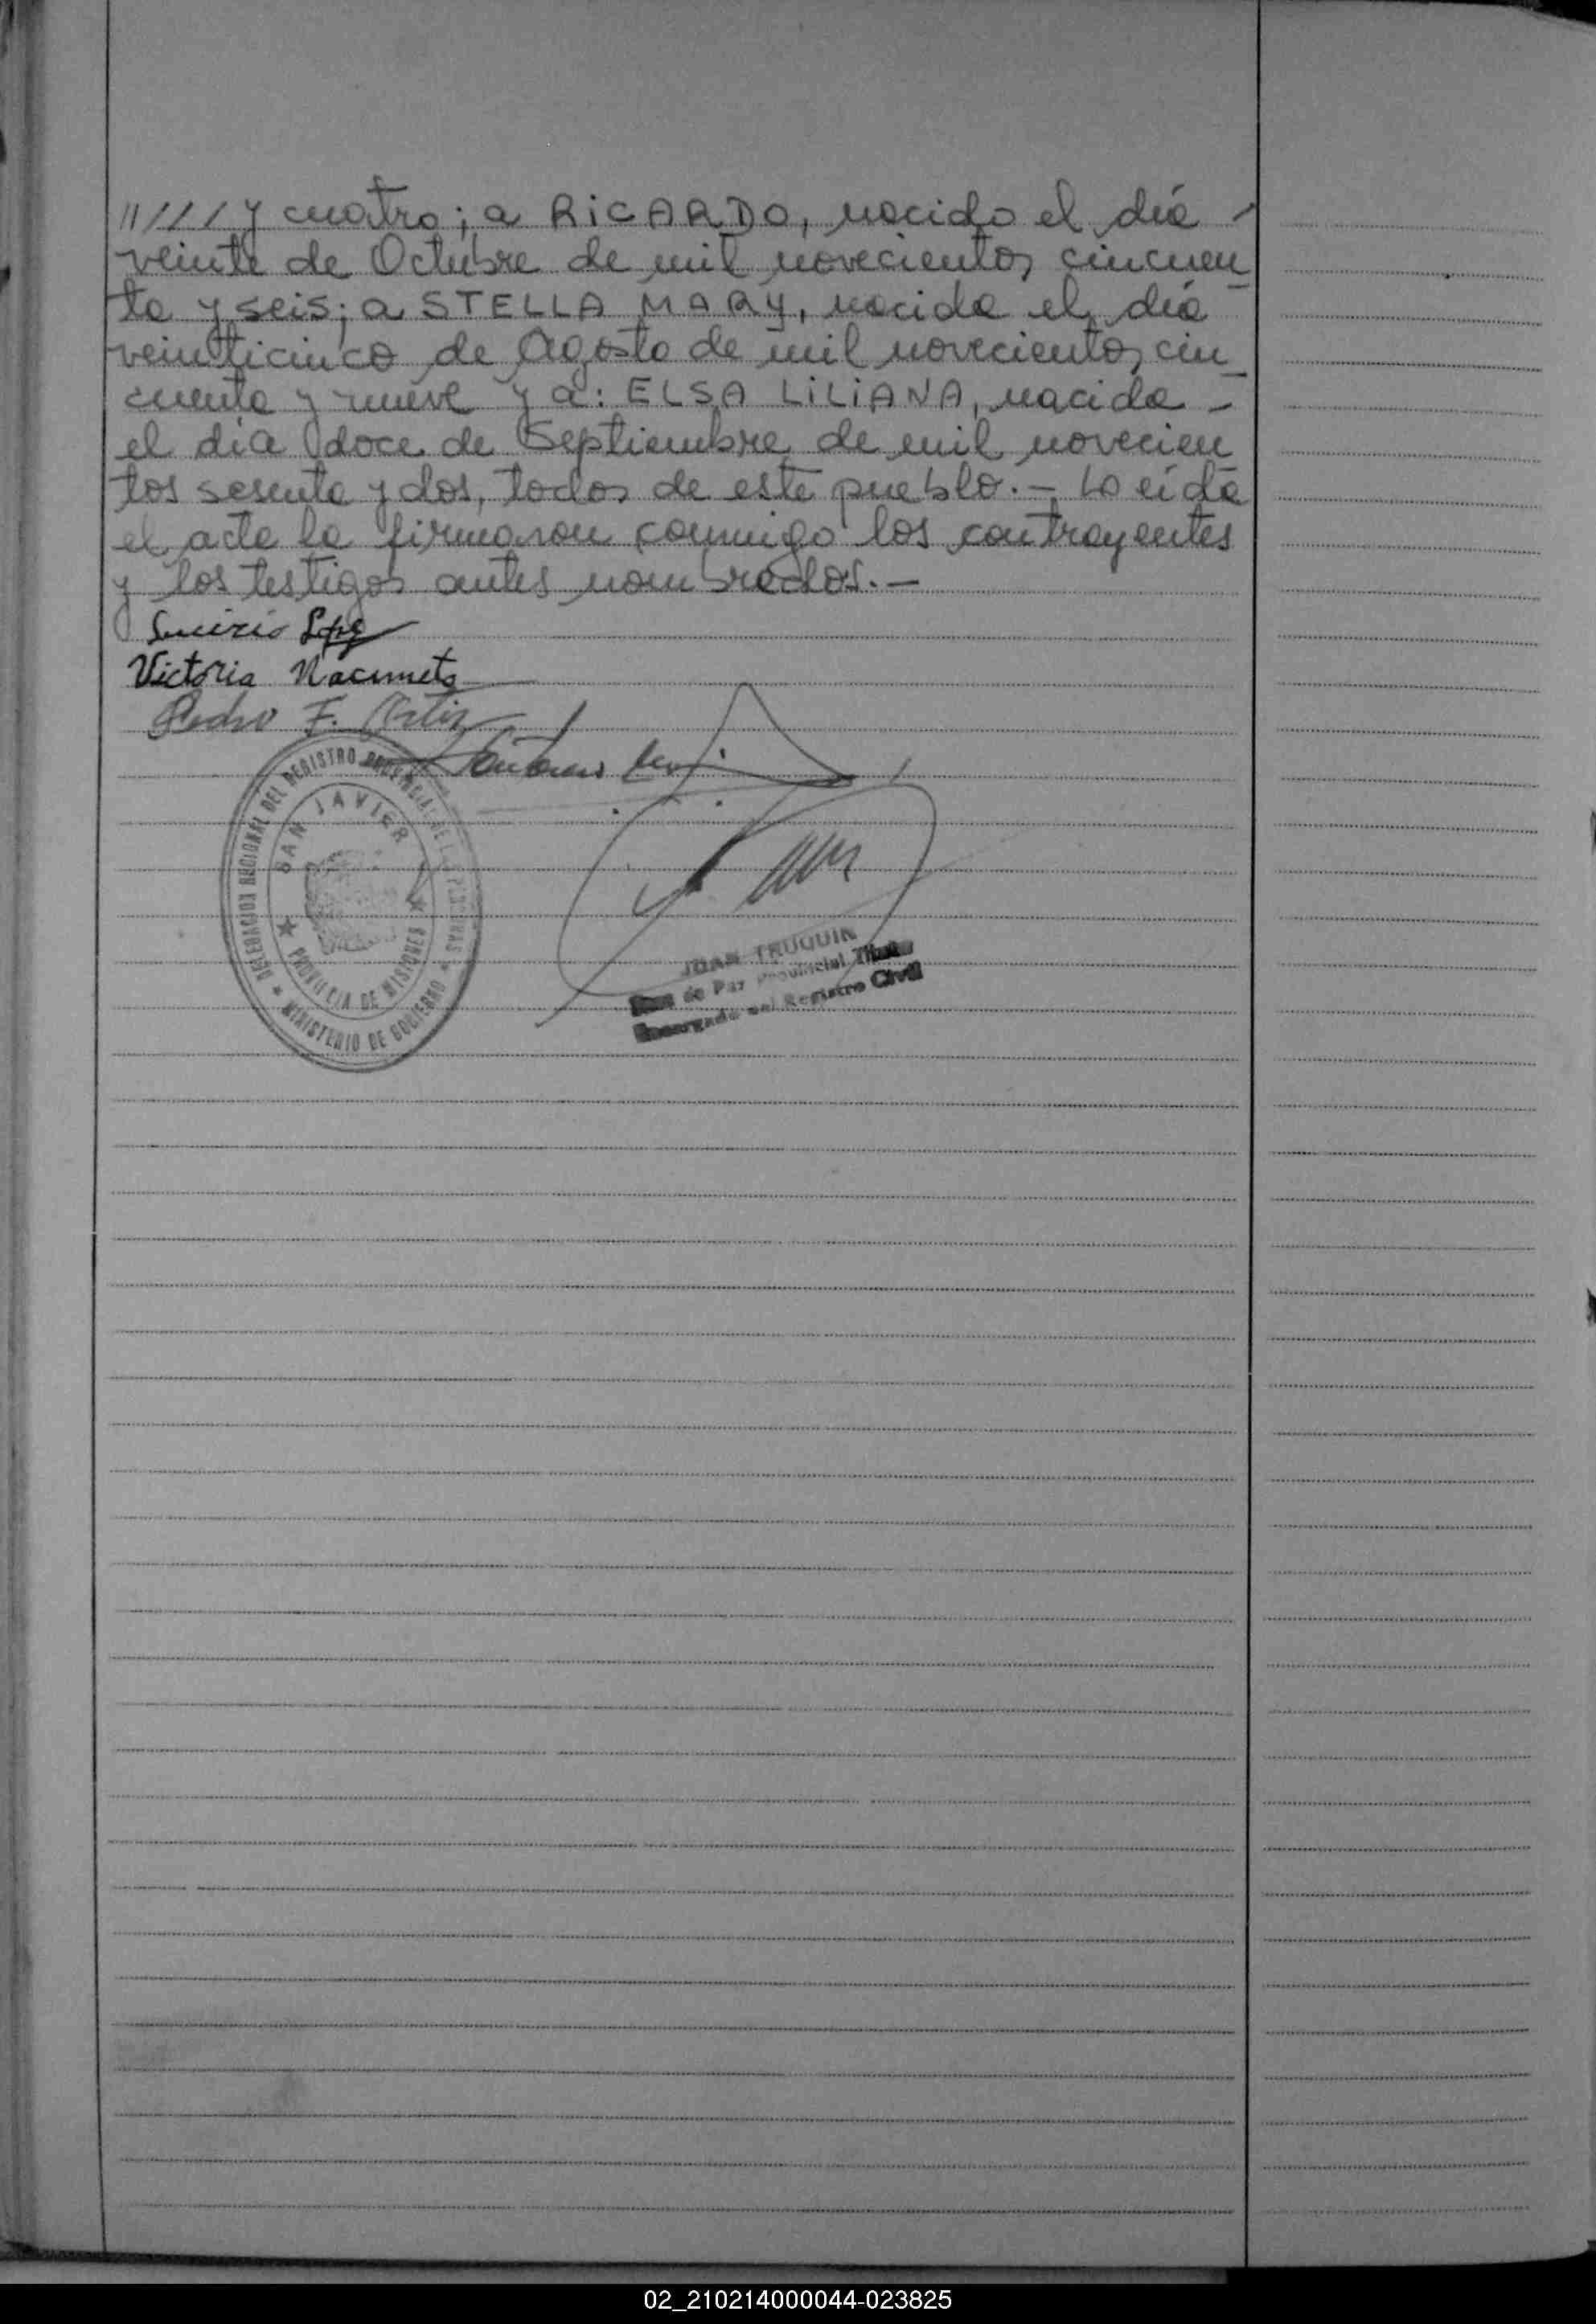 11////y cuatro; a RiCARDO, nacido el día -
veinte de Octubre de mil novecientos cincuen
ta y seis; a STELLA MARY, nacida el día
veinticinco de Agosto de mil novecientos cin
cuenta y nueve y a: ELSA LiLiANA, nacida -
el día doce de Septiembre de mil novecien
tos sesenta y dos, todos de este pueblo.- Leída
el acta la firmaron conmigo los contrayentes
y los testigos antes nombrados.-
Victoria Nacimeto
Pedro F. Ortiz
DELEGACION NACIONAL DEL REGISTRO PROVINCIAL DE LAS PERSONAS
SAN JAVIER
PROVINCIA DE MISIONES
MINISTERIO DE GOBIERNO
JUAN TRUQUIN
Juez de Paz Provincial Titular
Encargado del Registro Civil
02_210214000044-023825